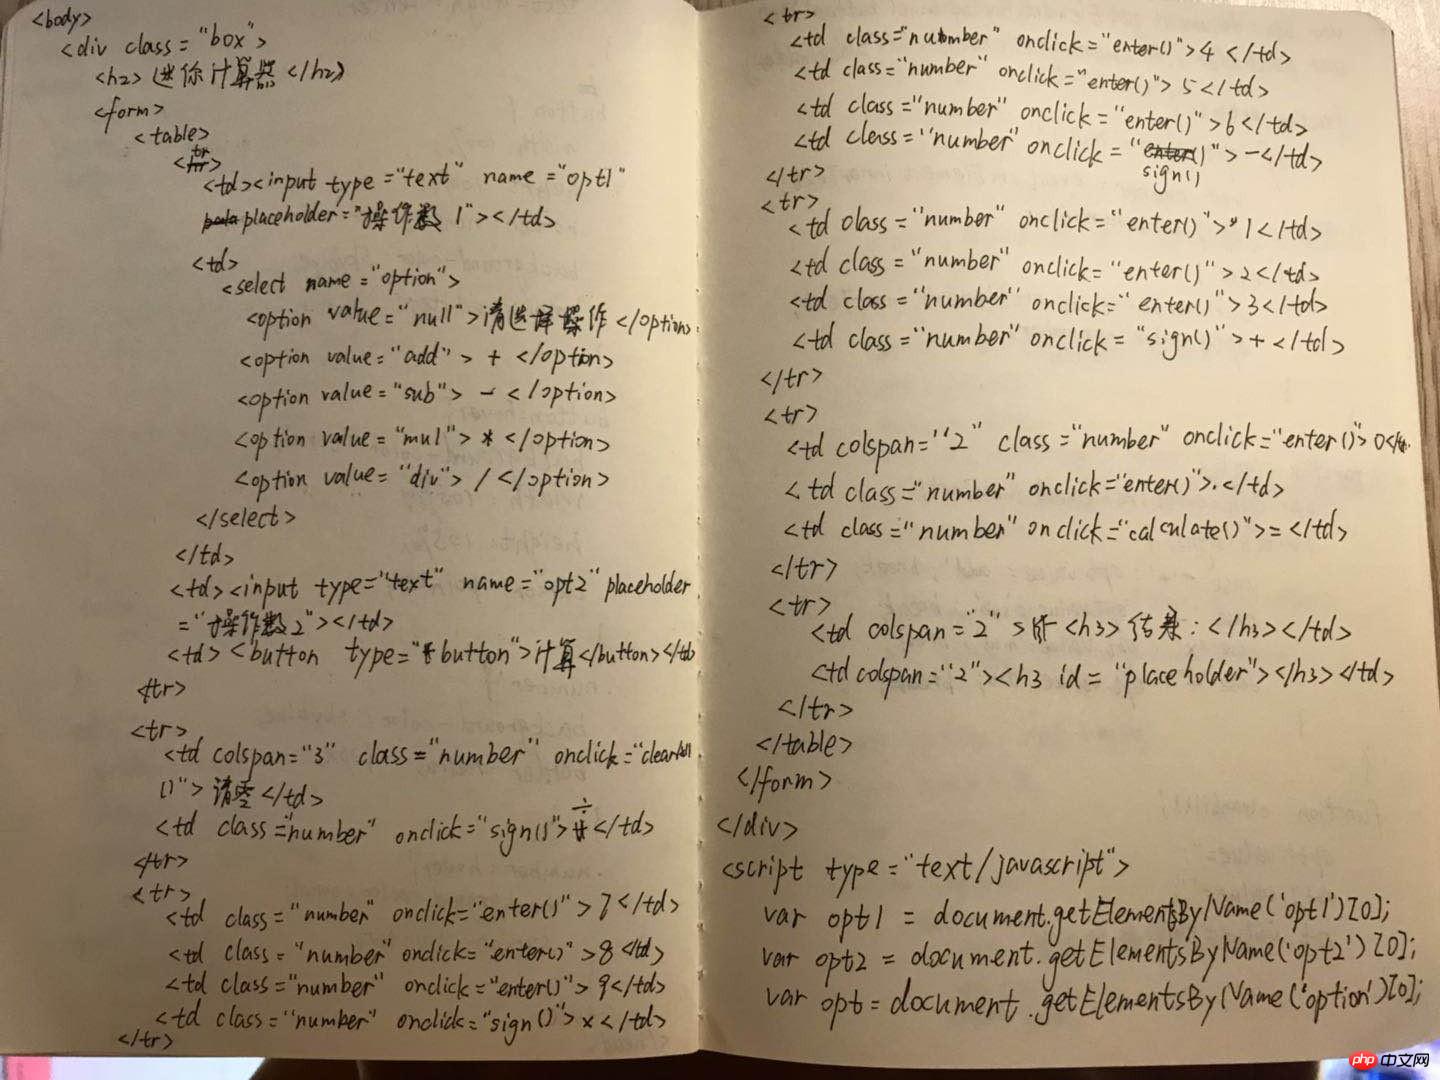 <body>
<div class="box">
<h2>迷你计算器</h2>
<form>
<table>
<tr>
<td><input type="text" name="opt1"
placeholder="操作数1"></td>
<td>
<select name="option">
<option value="null">请选择操作</option>
<option value="add"> + </option>
<option value="sub"> - </option>
<option value="mul"> * </option>
<option value="div"> / </option>
</select>
</td>
<td><input type="text" name="opt2" placeholder
="操作数2"></td>
<td><button type="button">计算</button></td>
</tr>
<tr>
<td colspan="3" class="number" onclick="clearAll
()">清零</td>
<td class="number" onclick="sign()">÷</td>
</tr>
<tr>
<td class="number" onclick="enter()">7</td>
<td class="number" onclick="enter()">8</td>
<td class="number" onclick="enter()">9</td>
<td class="number" onclick="sign()">×</td>
</tr>
<tr>
<td class="number" onclick="enter()">4</td>
<td class="number" onclick="enter()">5</td>
<td class="number" onclick="enter()">6</td>
<td class="number" onclick="sign()">-</td>
</tr>
<tr>
<td class="number" onclick="enter()">1</td>
<td class="number" onclick="enter()">2</td>
<td class="number" onclick="enter()">3</td>
<td class="number" onclick="sign()">+</td>
</tr>
<tr>
<td colspan="2" class="number" onclick="enter()">0</t
<td class="number" onclick="enter()">.</td>
<td class="number" onclick="calculate()">=</td>
</tr>
<tr>
<td colspan="2"><h3>结果:</h3></td>
<td colspan="2"><h3 id="placeholder"></h3></td>
</tr>
</table>
</form>
</div>
<script type="text/javascript">
var opt1 = document.getElementsByName('opt1')[0];
var opt2 = document.getElementsByName('opt2')[0];
var opt = document.getElementsByName('option')[0];
php中文网